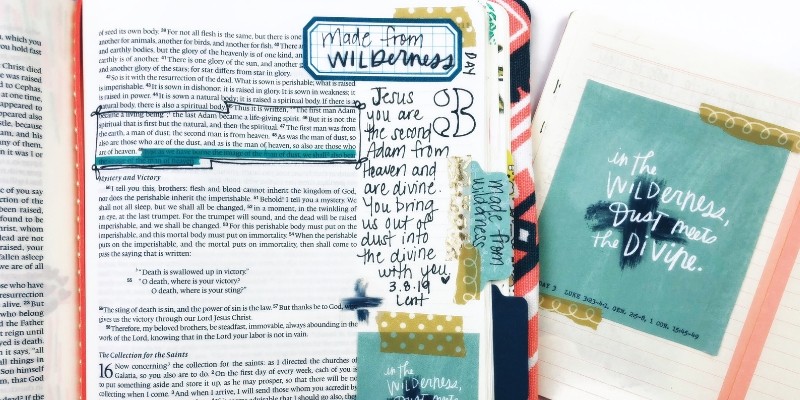 , which you
you hold fast
Christ died
was buried
of seed its own body. 39 For not all flesh is the same, but there is one
another for animals, another for birds, and another for fish. 40 There
and earthly bodies, but the glory of the heavenly is of one kind, and
earthly is of another. 41 There is one glory of the sun, and another
and another glory of the stars; for star differs from star in glory.
42 So is it with the resurrection of the dead. What is sown is perishable; what is raised
is imperishable. 43 It is sown in dishonor; it is raised in glory. It is sown in weakness; it
is raised in power. 44 It is sown a natural body; it is raised a spiritual body. If there is a
natural body, there is also a spiritual body. 45 Thus it is written, "The first man Adam
became a living being"; the last Adam became a life-giving spirit. 46 But it is not the
spiritual that is first but the natural, and then the spiritual. 47 The first man was from
the earth, a man of dust; the second man is from heaven. 48 As was the man of dust, so
also are those who are of the dust, and as is the man of heaven, so also are those who
are of heaven. 49 Just as we have borne the image of the man of dust, we shall also bear
the image of the man of heaven.
Mystery and Victory
50 I tell you this, brothers: flesh and blood cannot inherit the kingdom of God,
nor does the perishable inherit the imperishable. 51 Behold! I tell you a mystery. We
shall not all sleep, but we shall all be changed, 52 in a moment, in the twinkling of
an eye, at the last trumpet. For the trumpet will sound, and the dead will be raised
imperishable, and we shall be changed. 53 For this perishable body must put on the
imperishable, and this mortal body must put on immortality. 54 When the perishable
puts on the imperishable, and the mortal puts on immortality, then shall come to
pass the saying that is written:
"Death is swallowed up in victory."
55 "O death, where is your victory?
O death, where is your sting?"
56 The sting of death is sin, and the power of sin is the law. 57 But thanks be to God, who
gives us the victory through our Lord Jesus Christ.
58 Therefore, my beloved brothers, be steadfast, immovable, always abounding in the
work of the Lord, knowing that in the Lord your labor is not in vain.
The Collection for the Saints
16 Now concerning the collection for the saints: as I directed the churches of
Galatia, so you also are to do. 2 On the first day of every week, each of you is
to put something aside and store it up, as he may prosper, so that there will be no
collecting when I come. 3 And when I arrive, I will send those whom you accredit by
made from
WILDERNESS
DAY
03
Jesus
you are
the second
Adam from
Heaven and
are divine.
You bring
us out of
dust into
the divine
with you
3.8.19
Lent
made from
wilderness
in the
WILDERNESS,
DUST meets
in the
WILDERNESS,
DUST meets
the DIVINE.
DAY 3 LUKE 3:23-4:2, GEN. 2:4-8, 1 COR. 15:45-49